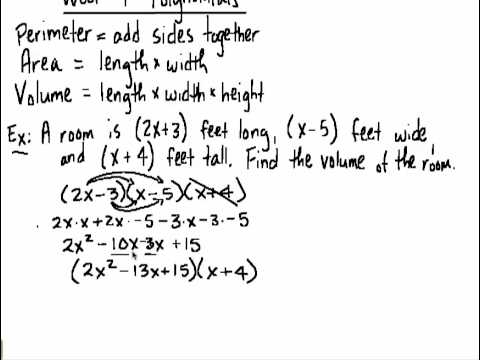 Perimeter = add sides together
Area = length × width
Volume = length × width × height
Ex: A room is (2x+3) feet long, (x-5) feet wide,
and (x+4) feet tall. Find the volume of the room.
(2x-3)(x-5)(x+4)
2x·x+2x·-5-3·x-3·-5
2x²-10x-3x+15
(2x²-13x+15)(x+4)